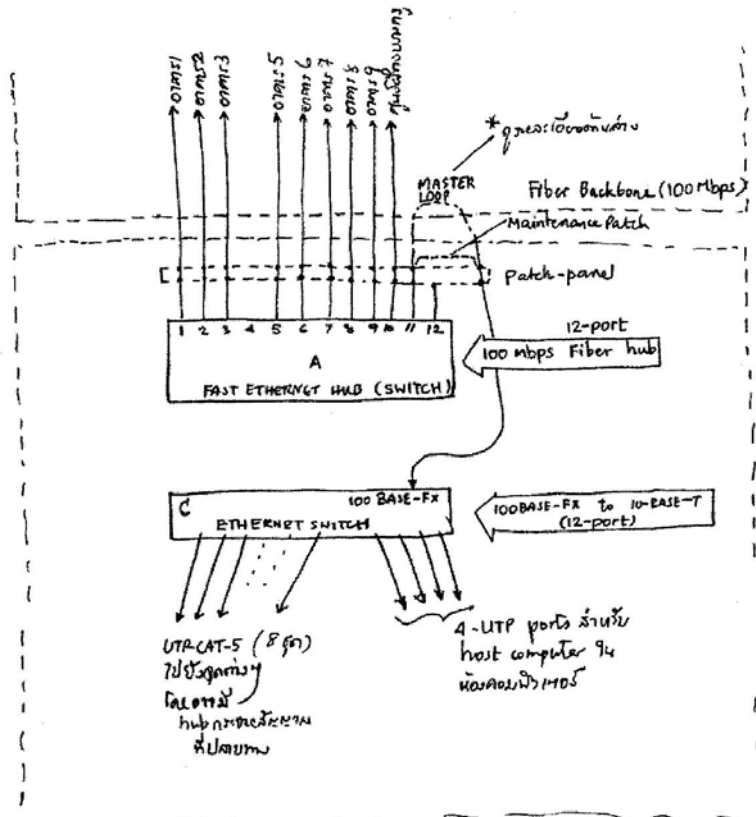 อาคาร1
อาคาร2
อาคาร3
อาคาร5
อาคาร6
อาคาร7
อาคาร8
อาคาร9
* ดูรายละเอียดด้านล่าง
MASTER
LOOP
Fiber Backbone (100 Mbps)
Maintenance Patch
Patch-panel
1 2 3 4 5 6 7 8 9 10 11 12
A
FAST ETHERNET HUB (SWITCH)
12-port
100 Mbps Fiber hub
C
100 BASE-FX
ETHERNET SWITCH
100BASE-FX to 10-BASE-T
(12-port)
UTP-CAT-5 (8 จุด)
ไปยังจุดต่างๆ
โดยอาจมี
hub กระจายสัญญาณ
ที่ปลายทาง
4-UTP ports สำหรับ
host computer ใน
ห้องคอมพิวเตอร์